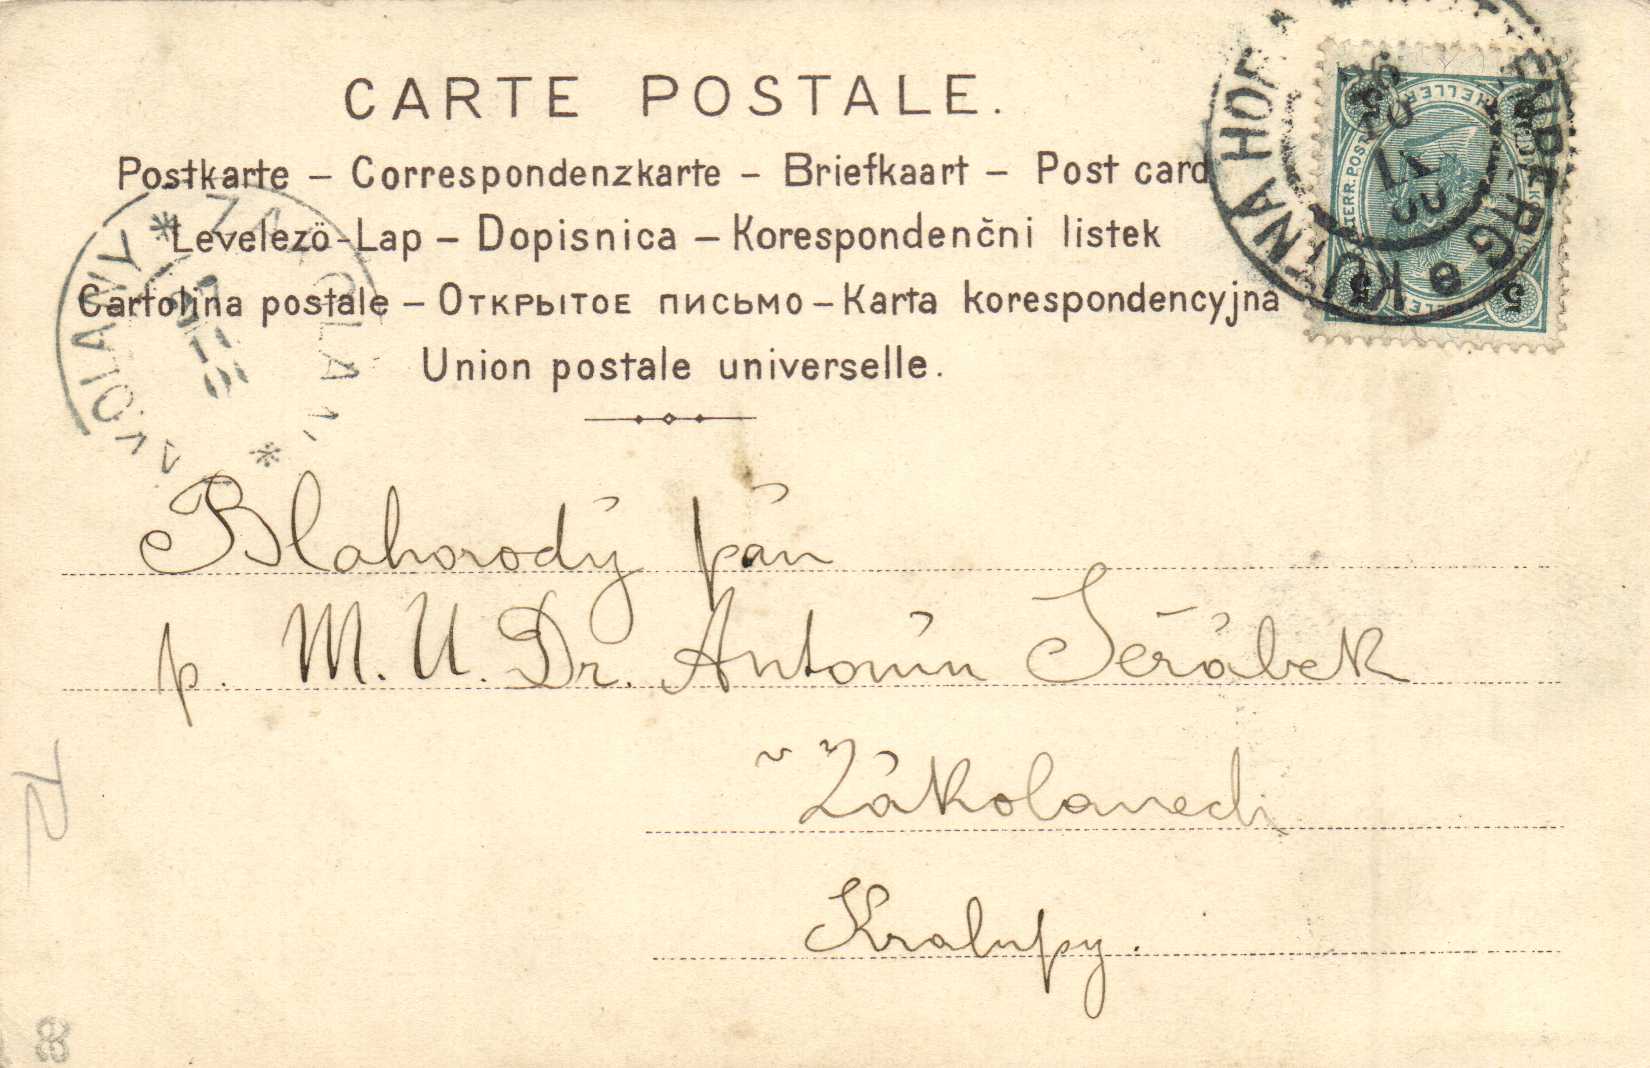 CARTE POSTALE.
Postkarte – Correspondenzkarte – Briefkaart – Post card
Levelezö-Lap – Dopisnica – Korespondenčni listek
Cartolina postale – Открытое письмо – Karta korespondencyjna
Union postale universelle.
KUTNÁ HORA
KUTTENBERG
26
10
HELLER
5
5
5
ZAKOLANY
Blahorodý pán
p. M.U.Dr. Antonín Jeřábek
v Zákolanech
Kralupy.